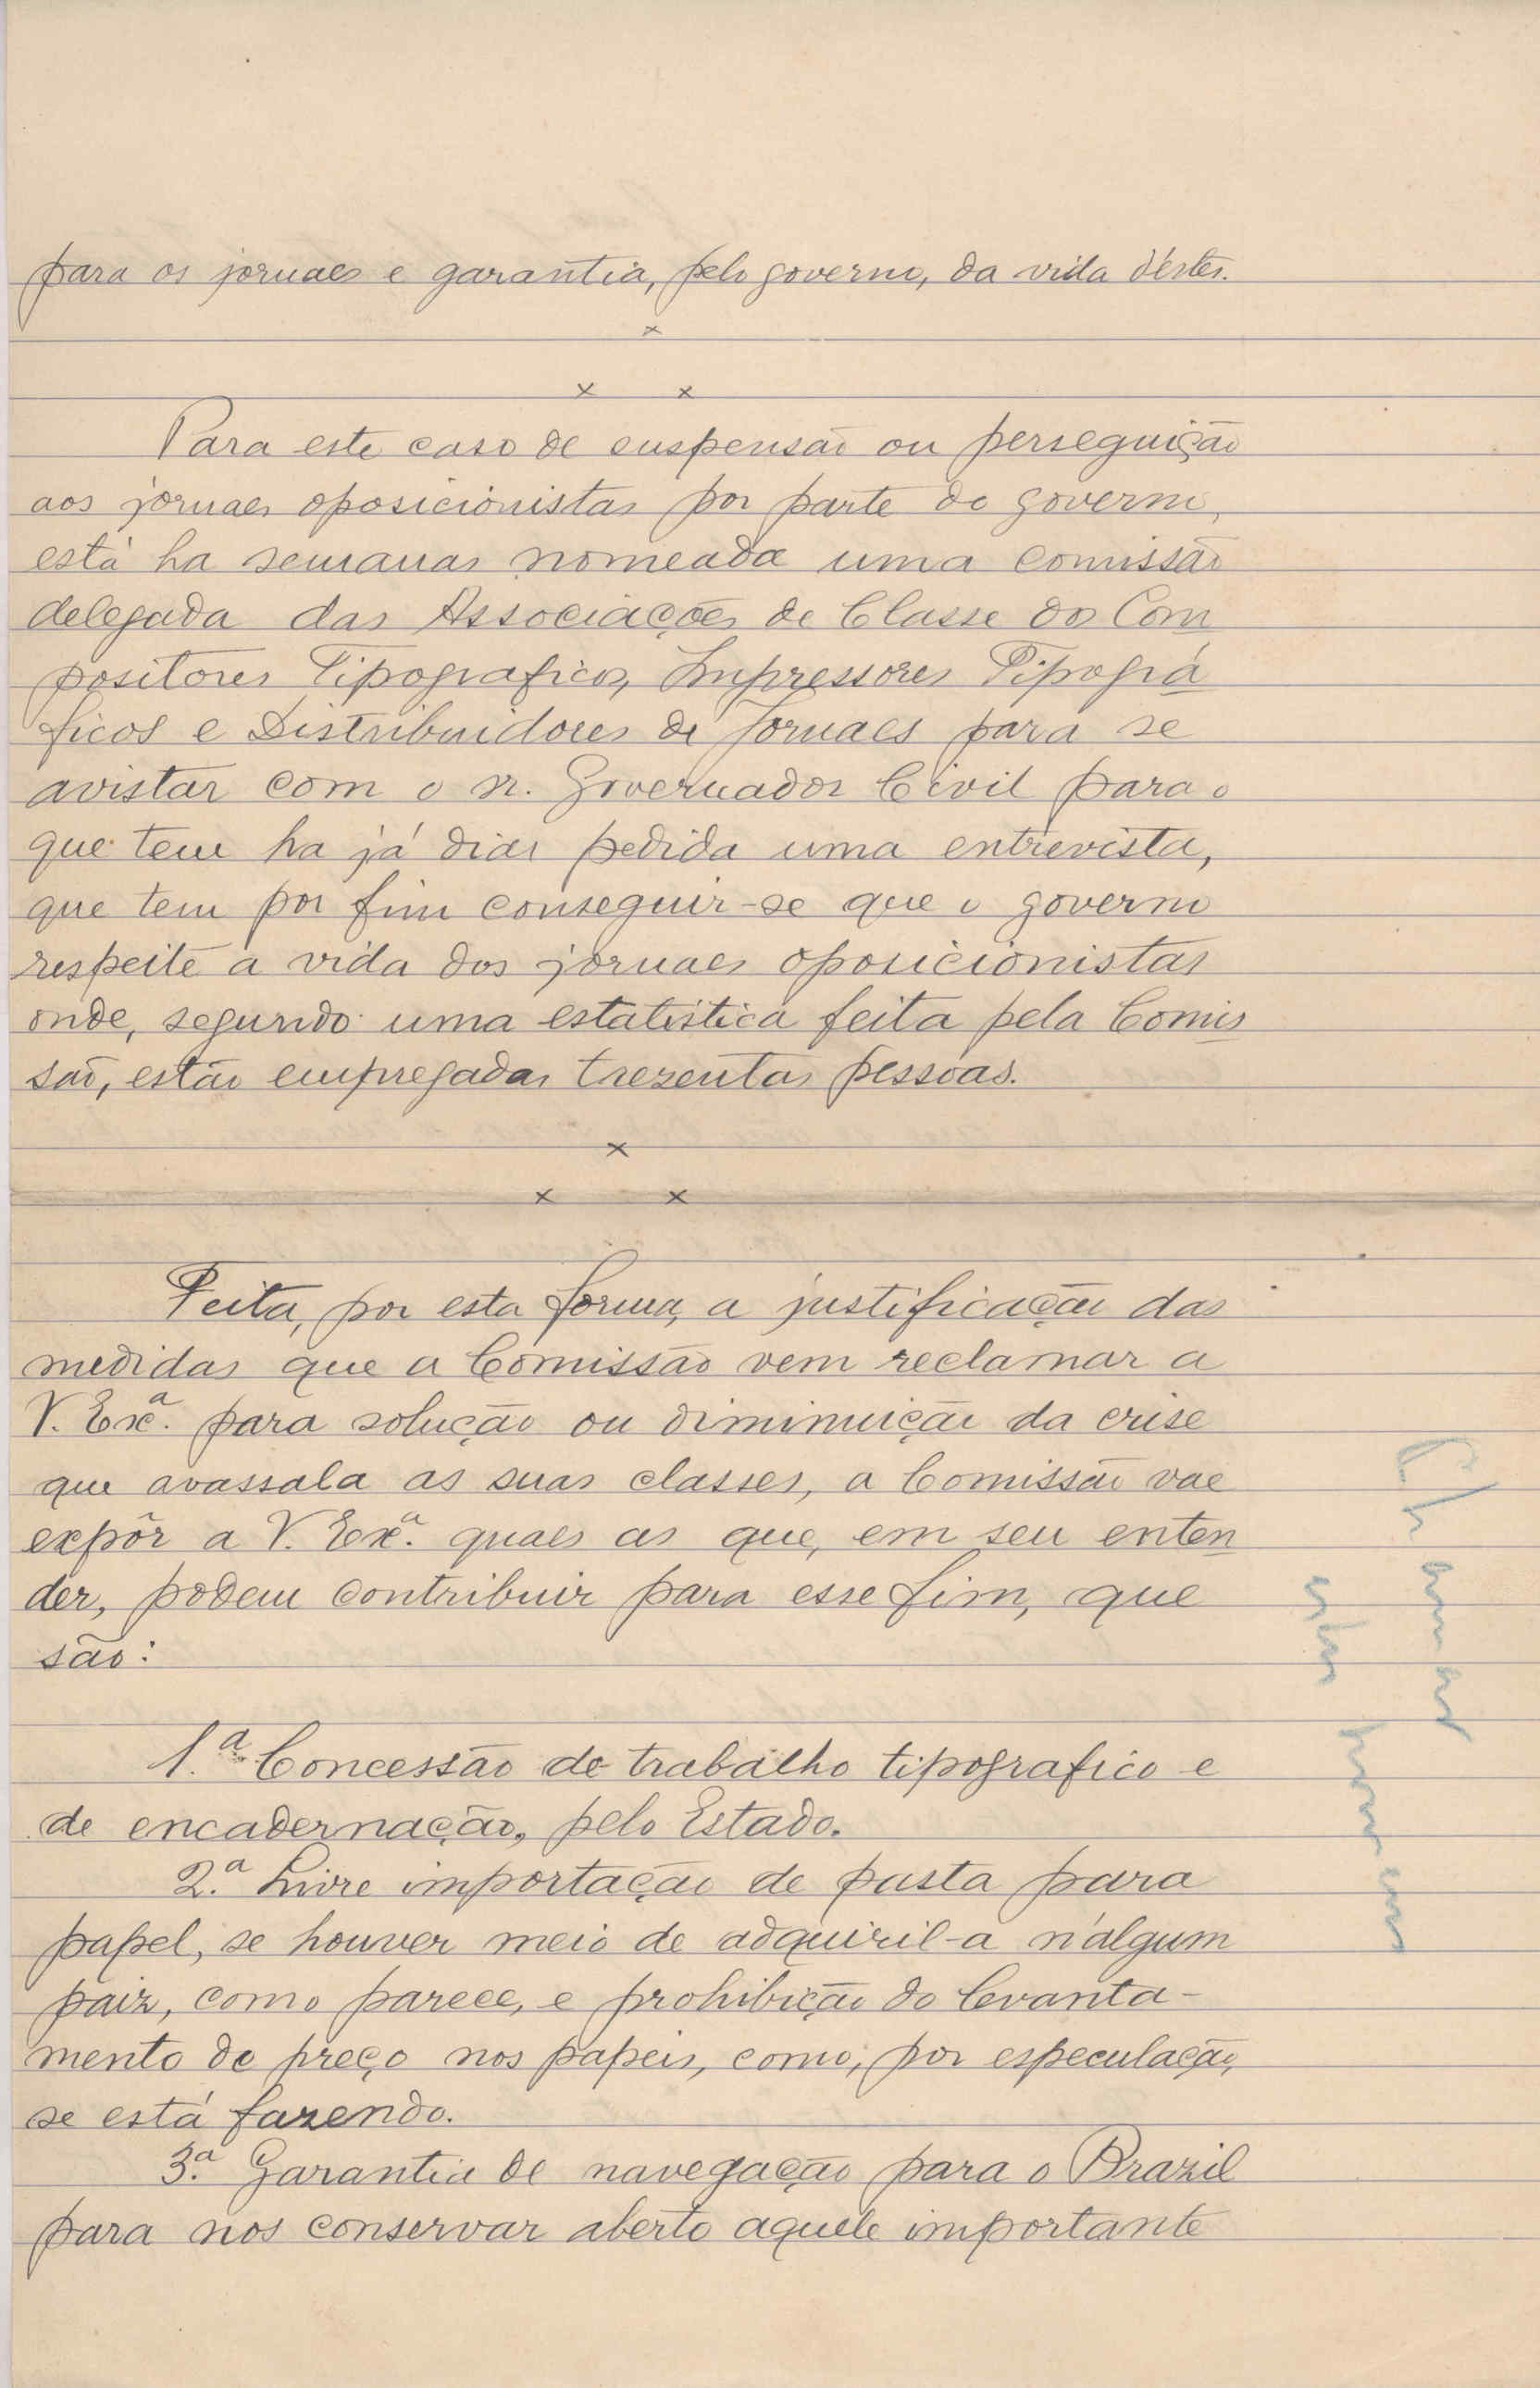 para os jornaes e garantia, pelo governo, da vida d'éstes.
x
x x
Para este caso de suspensão ou perseguição
aos jornaes oposicionistas por parte do governo,
está ha semanas nomeada uma comissão
delegada das Associações de Classe dos Com
positores Tipograficos, Impressores Tipográ
ficos e Distribuidores de Jornaes para se
avistar com o sr. Governador Civil para o
que tem ha já dias pedida uma entrevista,
que tem por fim conseguir-se que o governo
respeite a vida dos jornaes oposicionistas
onde, segundo uma estatistica feita pela Comis
são, estão empregadas trezentas pessoas.
x
x x
Feita, por esta forma, a justificação das
medidas que a Comissão vem reclamar a
V. Exª. para solução ou diminuição da crise
que avassala as suas classes, a Comissão vae
expôr a V. Exª. quaes as que, em seu enten
der, podem contribuir para esse fim, que
são:
1.ª Concessão de trabalho tipografico e
de encadernação, pelo Estado.
2.ª Livre importação de pasta para
papel, se houver meio de adquiril-a n'algum
paiz, como parece, e prohibição do levanta-
mento de preço nos papeis, como, por especulação,
se está fazendo.
3.ª Garantia de navegação para o Brazil
para nos conservar aberto aquele importante